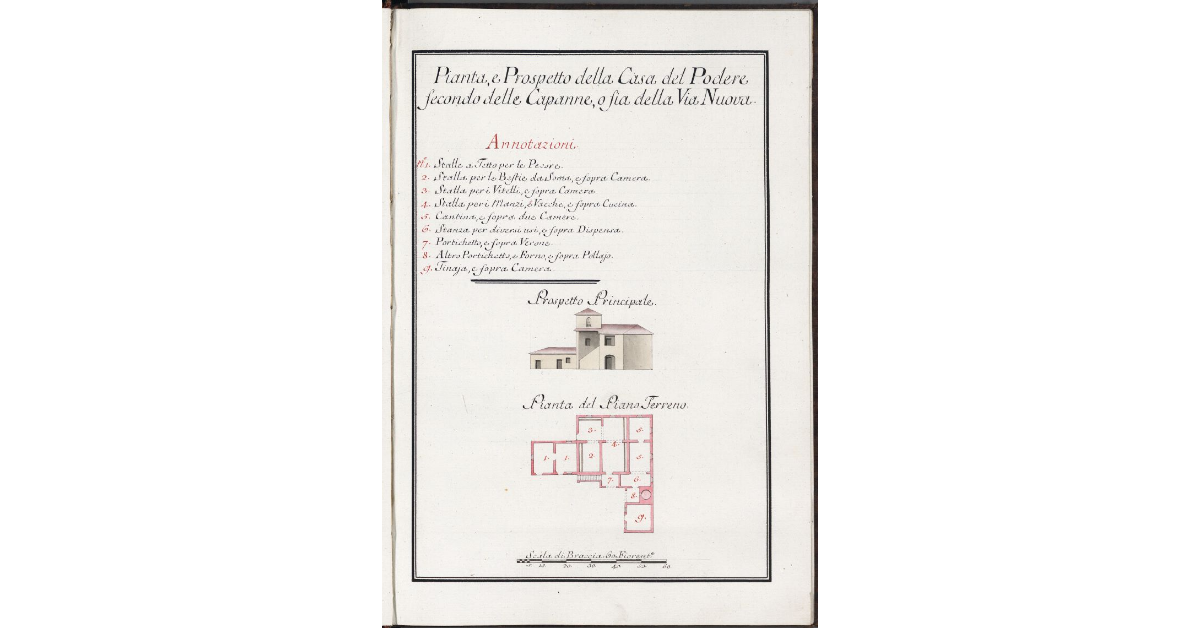 Pianta, e Prospetto della Casa del Podere
secondo delle Capanne, o sia della Via Nuova.
Annotazioni.
N.1. Stalle a Tetto per le Pecore.
2. Stalla per le Bestie da Soma, e sopra Camera.
3. Stalla per i Vitelli, e sopra Camera
4. Stalla per i Manzi, e Vacche, e sopra Cucina.
5. Cantina, e sopra due Camere.
6. Stanza per diversi usi, e sopra Dispensa.
7. Portichetto, e sopra Verone.
8. Altro Portichetto, e Forno, e sopra Pollajo.
9. Tinaja, e sopra Camera
Prospetto Principale.
Pianta del Piano Terreno.
3. 5.
4.
1. 1. 2. 5.
7. 6.
8.
9.
Scala di Braccia 60 Fiorent.e
10 20 30 40 50 60